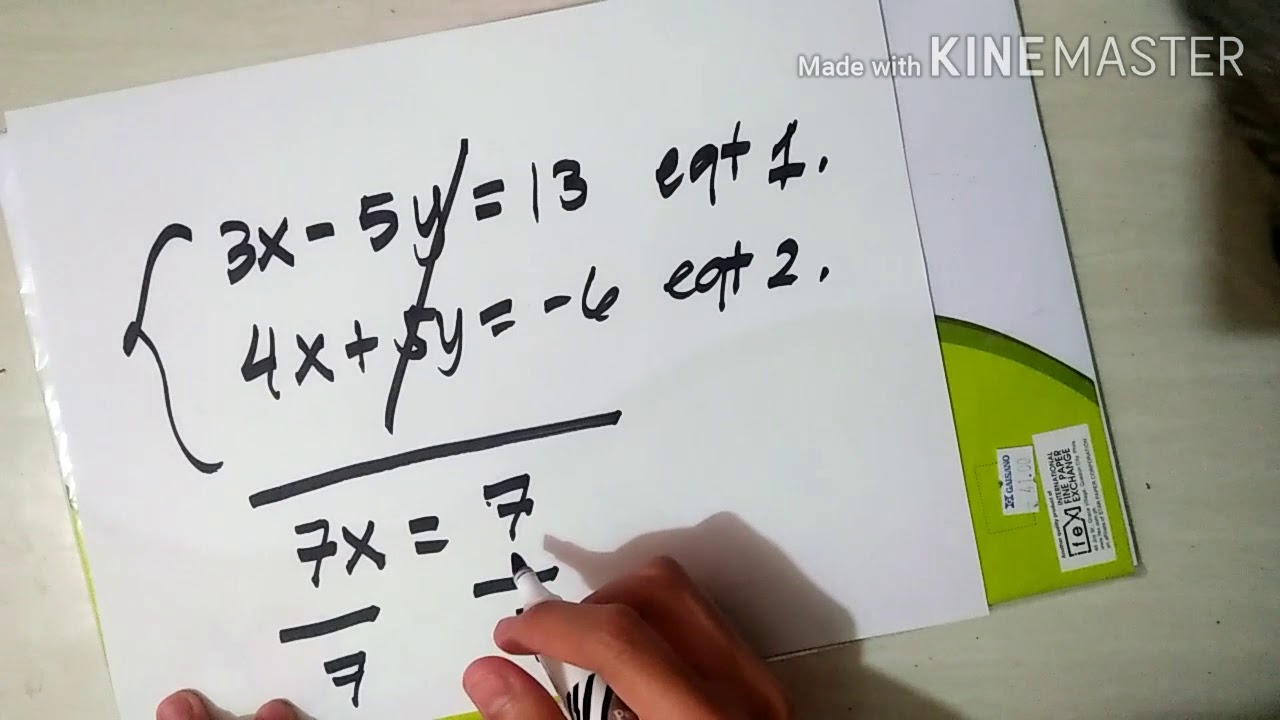 Made with KINEMASTER
3x - 5y = 13 eqt 1.
4x + 5y = -6 eqt 2.
7x = 7
7
GAISANO
41.00
ifex
INTERNATIONAL
FINE PAPER
EXCHANGE